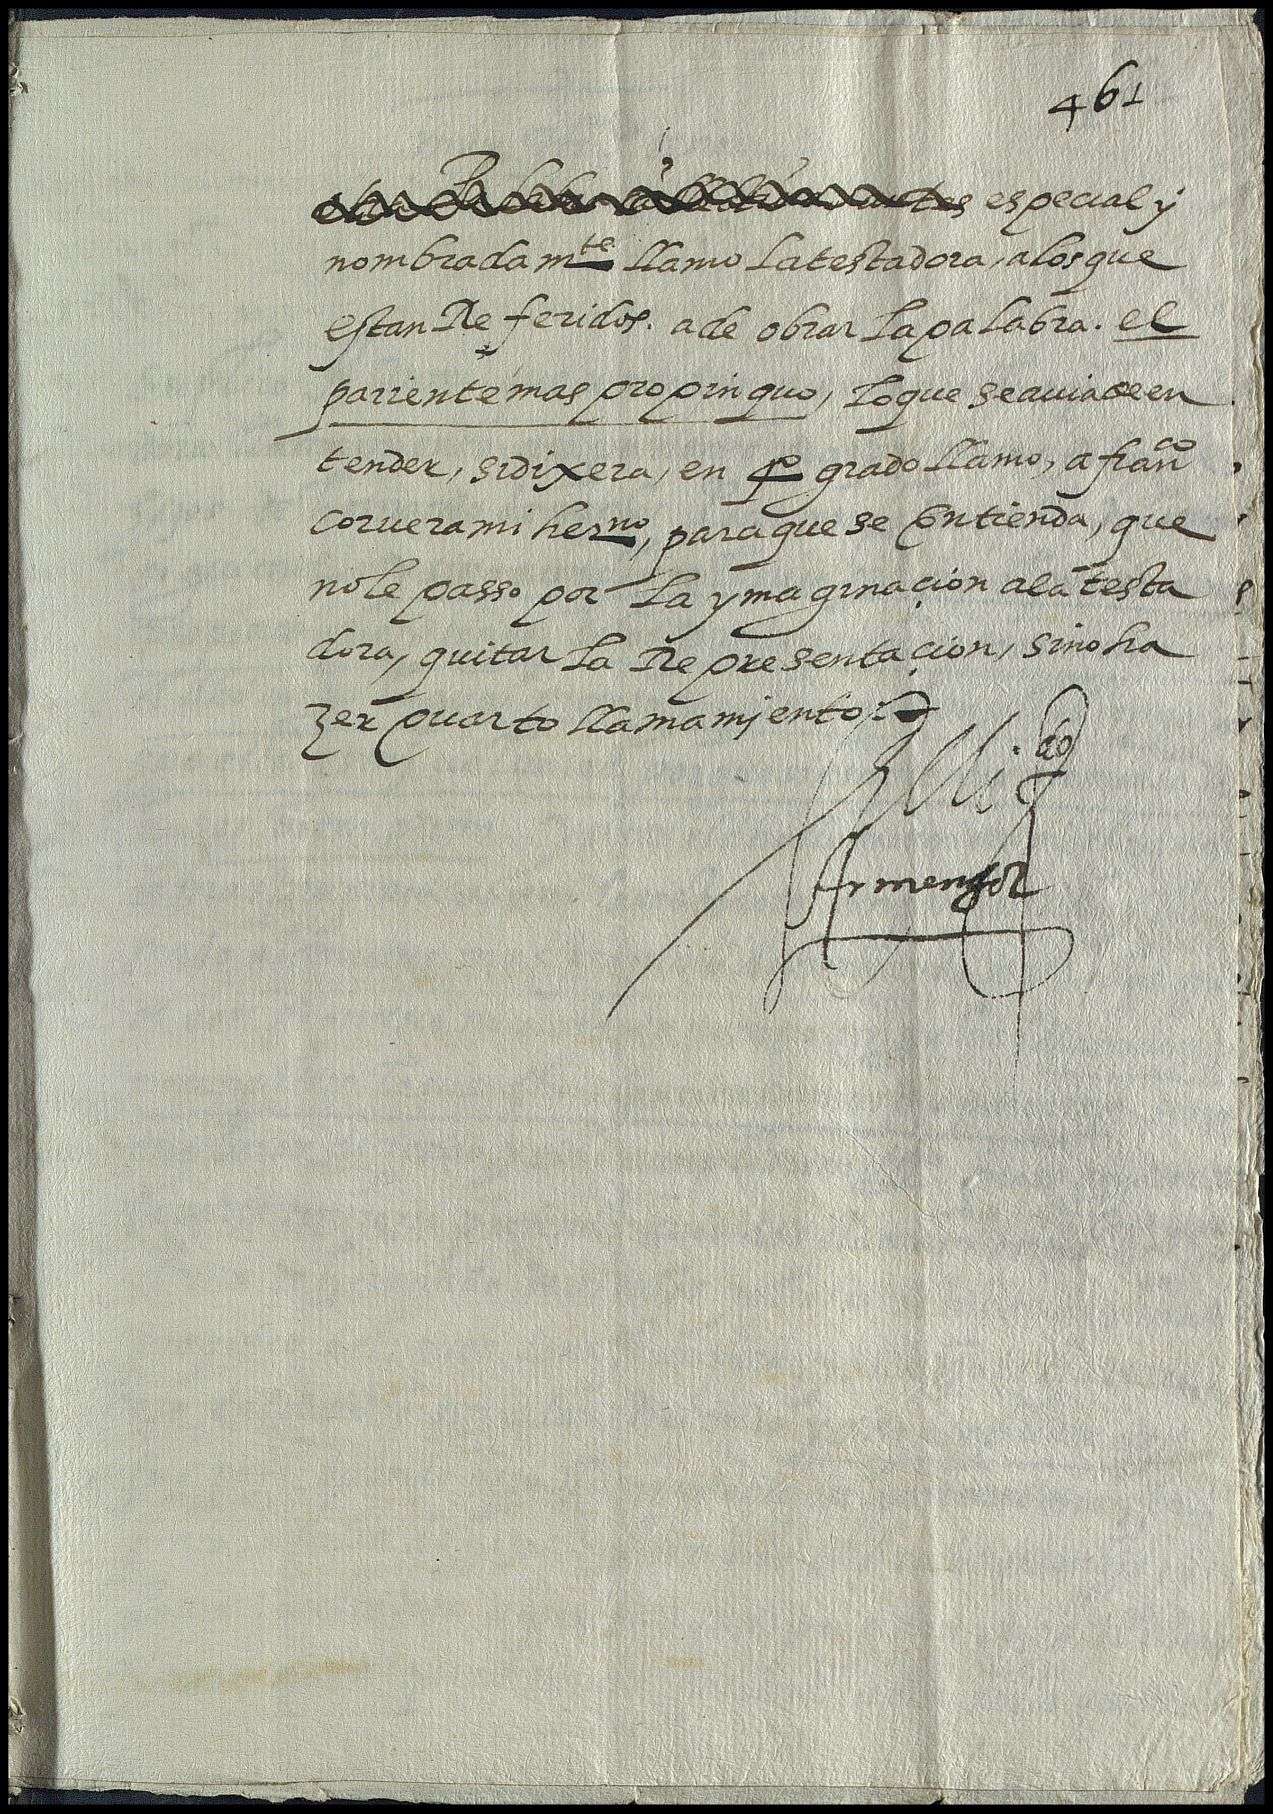 461
especial y
nombradamte llamo la testadora, a los que
estan Referidos. a de obrar la palabra. el
pariente mas propinquo, lo que se auia de en
tender, si dixera, en 4º grado llamo, a franco
coruera mi herno, para que se entienda, que
no le passo por la ymaginaçion a la testa
dora, quitar la Representaçion, sino ha
zer quarto llamamiento.
El Licdo
Armengol